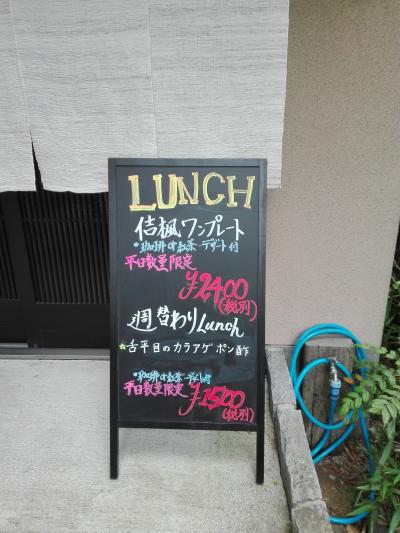 LUNCH
佶楓ワンプレート
•珈琲or紅茶・デザート付
平日数量限定
¥2400
(税別)
週替わりLunch
☆舌平目のカラアゲポン酢
•珈琲or紅茶・デザート付
平日数量限定
¥1500
(税別)